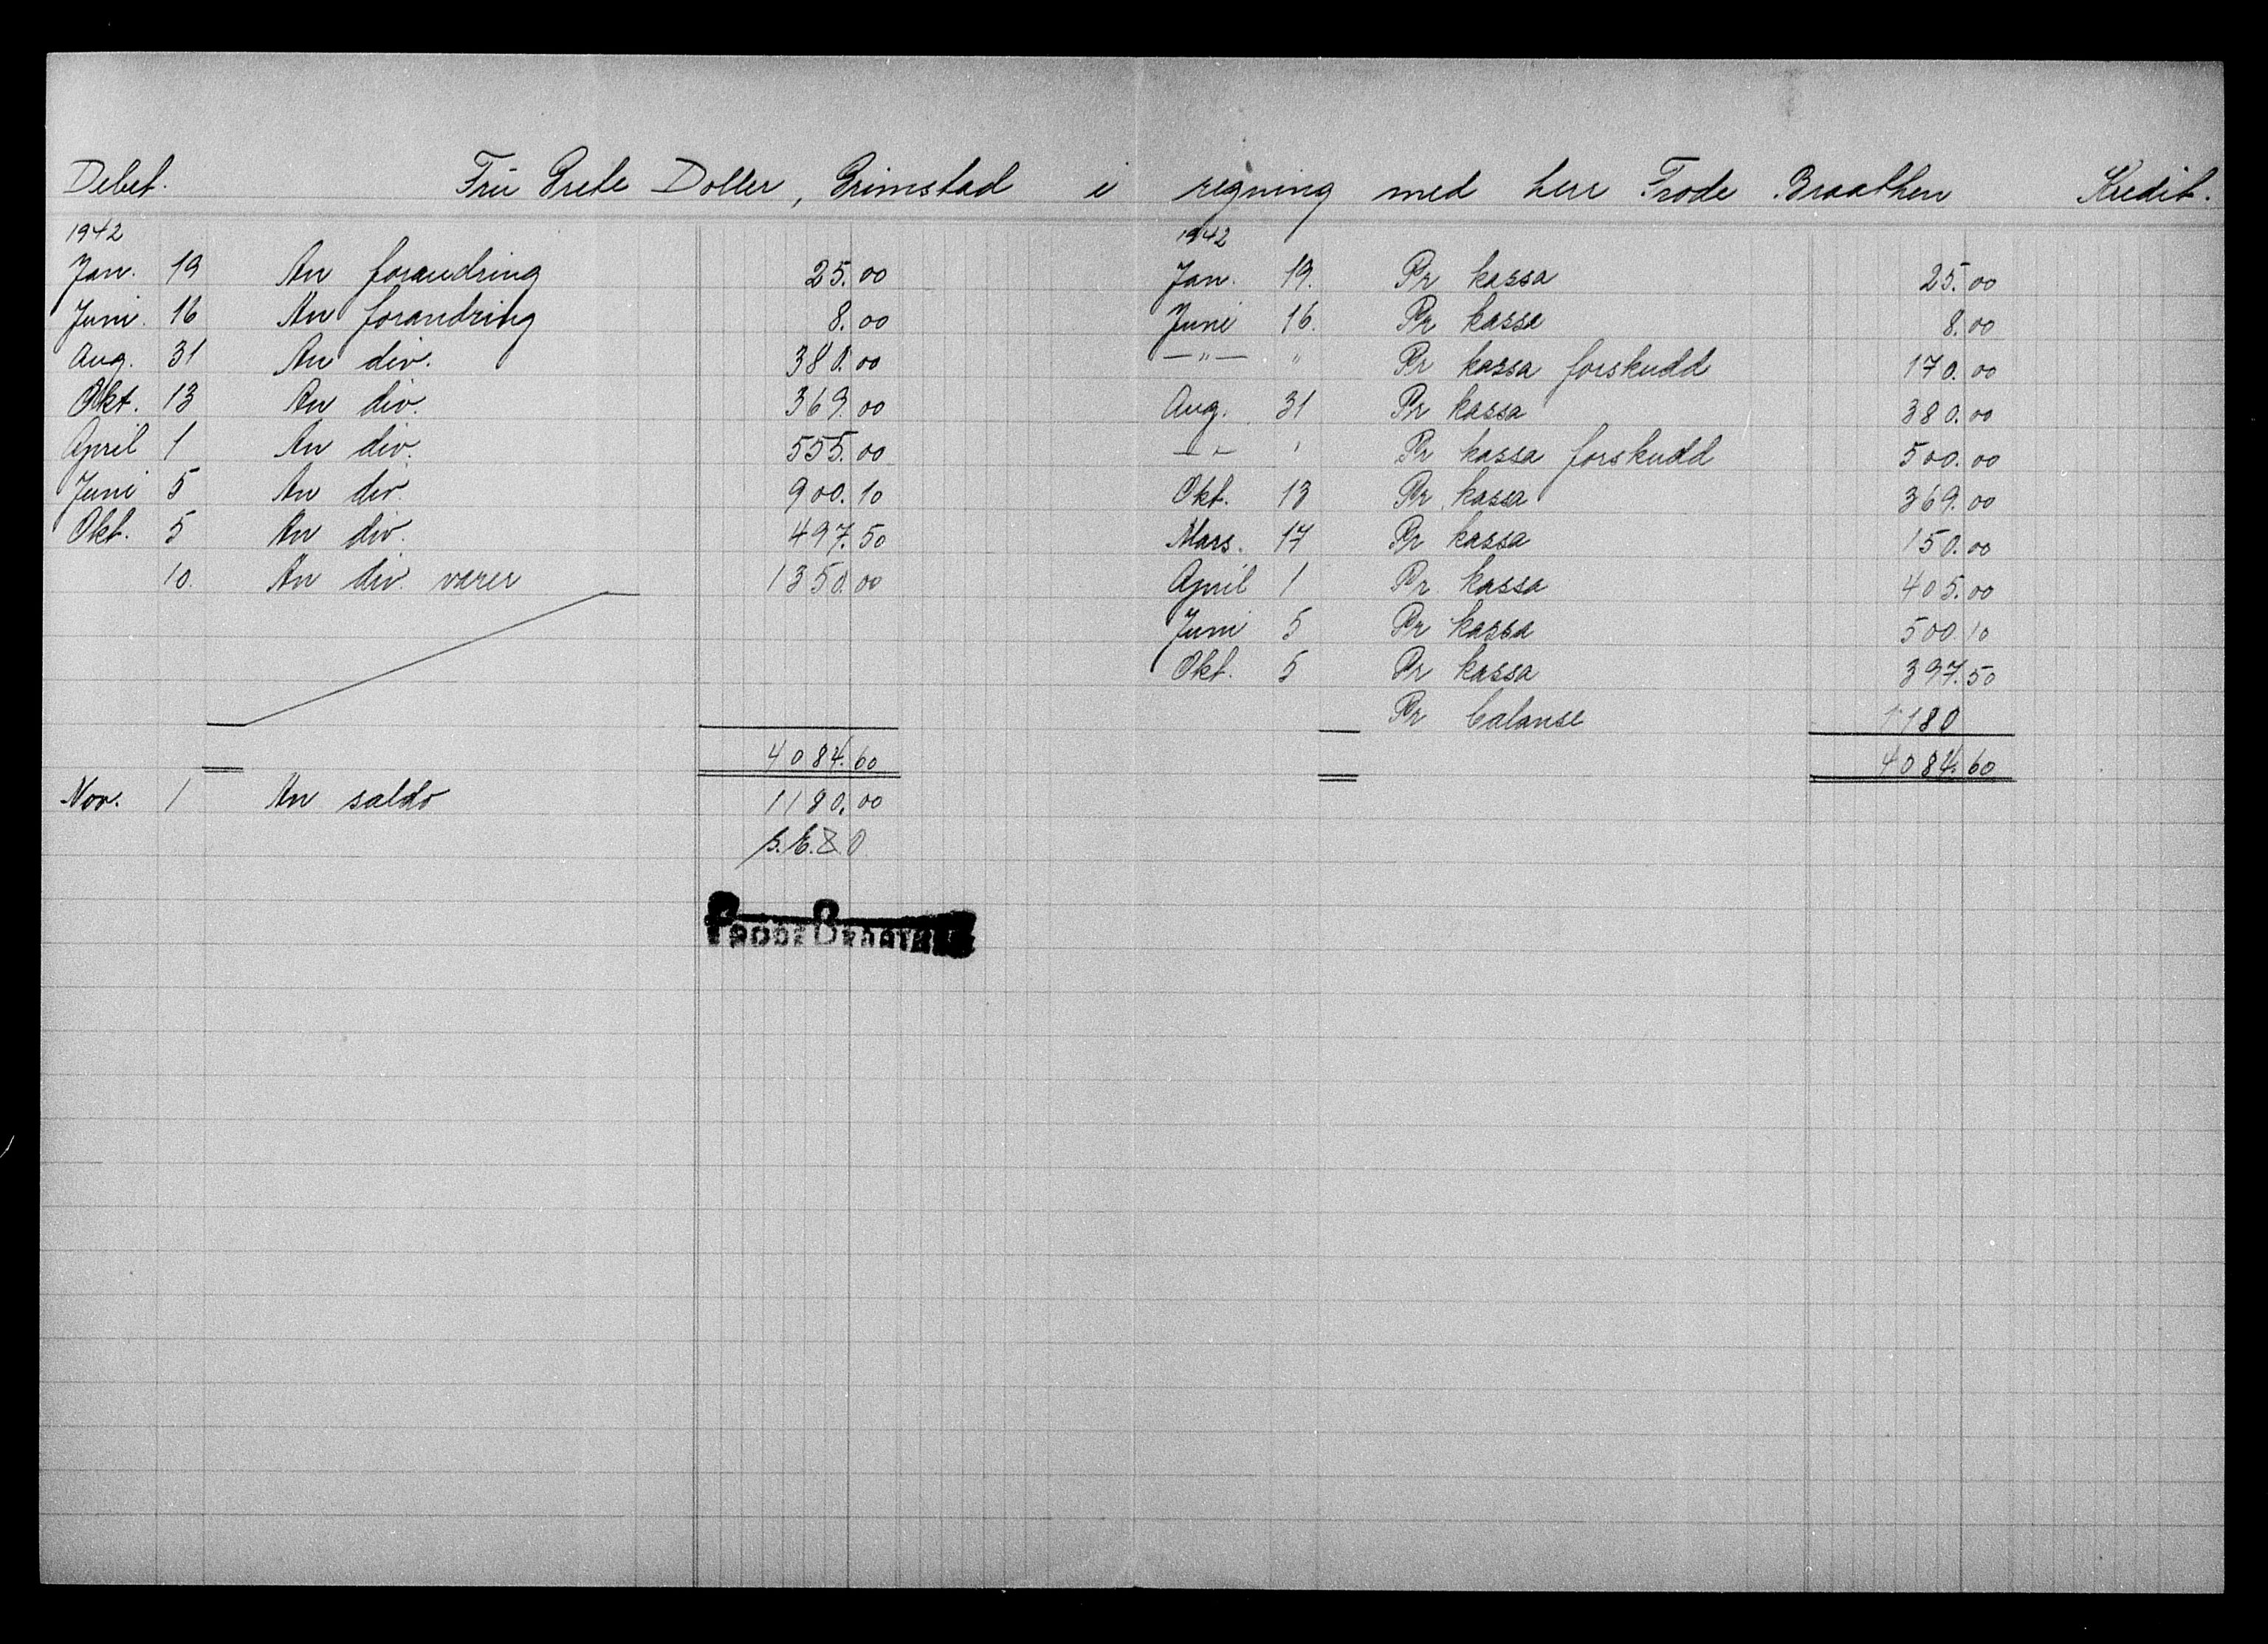 Debet. Frü Grete Doller, Grimstad i regning med herr Frode Braathen Kredit.
1942
Jan. 19 An forandring 25.00
Juni. 16 An forandring 8.00
Aug. 31 An div. 380.00
Okt. 13 An div. 369.00
April 1 An div. 555.00
Juni 5 An div. 900.10
Okt. 5 An div. 497.50
10. An div. varer 1350.00
4084.60
Nov. 1 An saldo 1180.00
S.E.&.O
Frode Braathen
1942
Jan. 19. Pr kassa 25.00
Juni 16. Pr kassa 8.00
—"— " Pr kassa forskudd 170.00
Aug. 31 Pr kassa 380.00
—"— " Pr kassa forskudd 500.00
Okt. 13 Pr kassa 369.00
Mars. 17 Pr kassa 150.00
April 1 Pr kassa 405.00
Juni 5 Pr kassa 500.10
Okt. 5 Pr kassa 397.50
Pr balanse 1180
4084.60